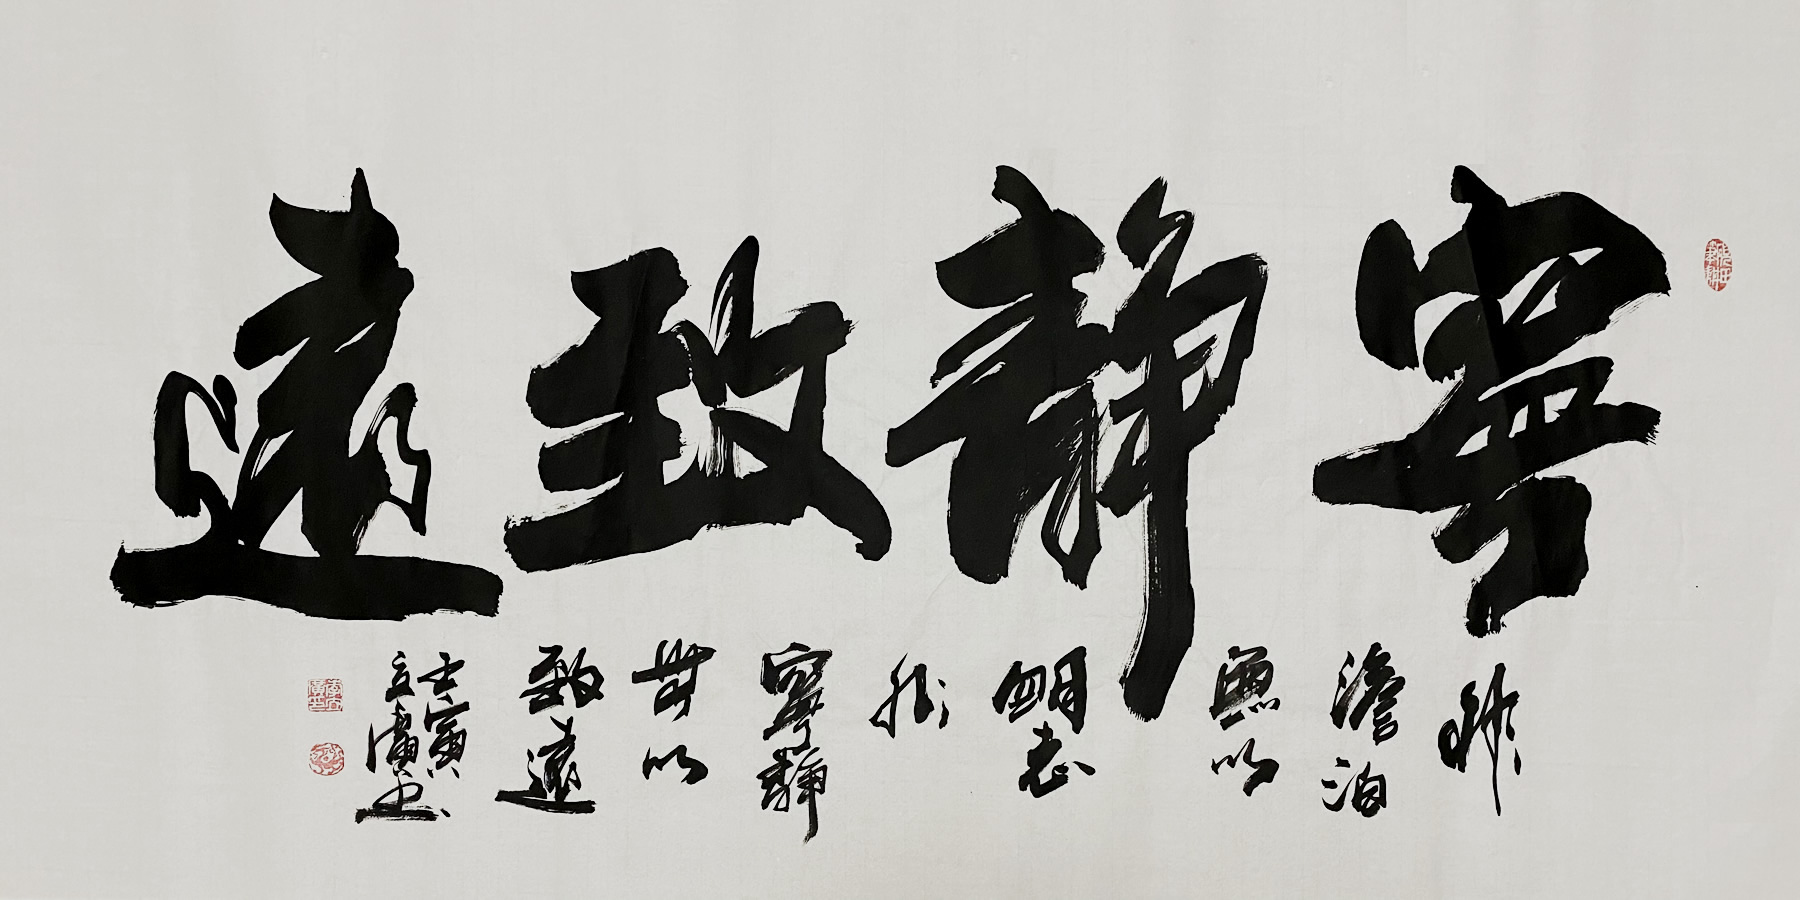 寧靜致遠
非
澹泊
無以
明志
非
寧靜
無以
致遠
壬寅
立廣書